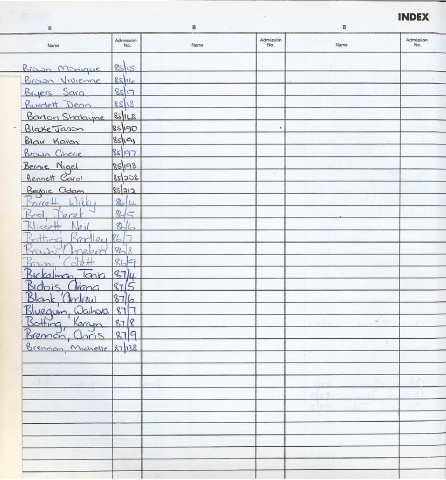 INDEX
B B B
Name Admission No. Name Admission No. Name Admission No.
Brown Monique 85/15
Brown Vivienne 85/16
Bryers Sara 85/17
Burdett Dean 85/18
Barton 85/168
Blake Jason 85/190
Blair Karen 85/191
Brown 85/197
Bernie Nigel 85/198
Bennett Carol 85/208
Adam 85/212
Barrett, 86/4
Best, Derek 86/5
Blissett Neil 86/6
Britting Bradley 86/7
Brown, 86/8
Brown, 86/9
Bickelman, Tania 87/4
Bidois, 87/5
Blank, Andrew 87/6
Bluegum, Waihora 87/7
Botting, Karryn 87/8
Brennan, Chris 87/9
Brennan, Michelle 87/138